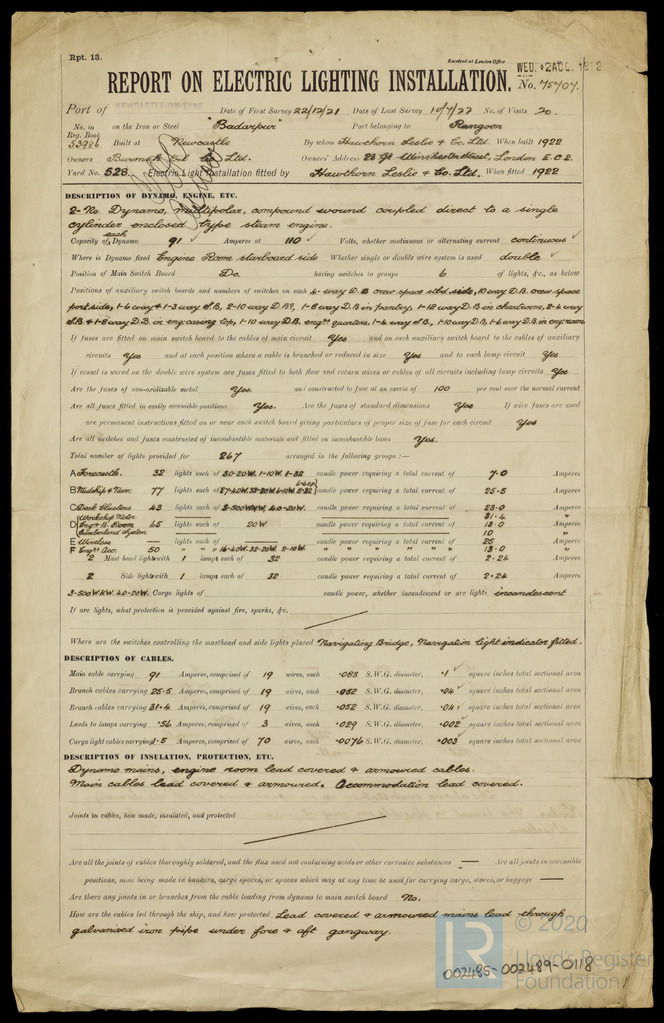 Rpt. 13.
Received at London Office
WED. 2 AUG. 192
REPORT ON ELECTRIC LIGHTING INSTALLATION. No. 75707.
Port of NEWCASTLE-ON-TYNE Date of First Survey 22/12/21 Date of Last Survey 10/7/22 No. of Visits 20.
No. in Reg. Book on the Iron or Steel "Badarpur" Port belonging to Rangoon
53986 Built at Newcastle By whom Hawthorn Leslie & Co. Ltd. When built 1922
Owners Burmah Oil Co. Ltd. Owners' Address 23 Gt Winchester Street, London E.C.2.
Yard No. 528. Electric Light Installation fitted by Hawthorn Leslie & Co. Ltd. When fitted 1922
DESCRIPTION OF DYNAMO, ENGINE, ETC.
2-No. Dynamo, multipolar, compound wound coupled direct to a single
cylinder enclosed type steam engine.
Capacity of each Dynamo 91 Amperes at 110 Volts, whether continuous or alternating current continuous
Where is Dynamo fixed Engine Room starboard side Whether single or double wire system is used double
Position of Main Switch Board Do. having switches to groups 6 of lights, &c., as below
Positions of auxiliary switch boards and numbers of switches on each 4-way D.B crew space stbd side, 10 way D.B. crew space
port side, 1-6 way & 1-3 way S.B, 2-10 way D.B, 1-8 way D.B in pantry, 1-12 way D.B in chartroom, 2-4 way
S.B & 1-8 way D.B in eng. casing top, 1-10 way D.B. engrs quarters, 1-4 way S.B., 1-10 way D.B, 1-6 way D.B in eng. room
If fuses are fitted on main switch board to the cables of main circuit Yes and on each auxiliary switch board to the cables of auxiliary
circuits Yes and at each position where a cable is branched or reduced in size Yes and to each lamp circuit Yes
If vessel is wired on the double wire system are fuses fitted to both flow and return wires or cables of all circuits including lamp circuits Yes
Are the fuses of non-oxidizable metal Yes. and constructed to fuse at an excess of 100 per cent over the normal current
Are all fuses fitted in easily accessible positions Yes. Are the fuses of standard dimensions Yes If wire fuses are used
are permanent instructions fitted on or near each switch board giving particulars of proper size of fuse for each circuit Yes
Are all switches and fuses constructed of incombustible materials and fitted on incombustible bases Yes.
Total number of lights provided for 267 arranged in the following groups :—
A Forecastle. 32 lights each of 30-20W. 1-10W. 1-32 candle power requiring a total current of 7.0 Amperes
B Midship & Nav: 77 lights each of 27-40W. 38-20W. 6-10W. 2-32 candle power requiring a total current of 25.5 Amperes
C Deck Clusters 43 lights each of 3-500W, 40-20W. candle power requiring a total current of 23.0 Amperes
Workshop Motor 31.4 "
D Engr & B. Room 65 lights each of 20W candle power requiring a total current of 13.0 Amperes
Cumberland System 10 "
E Wireless — lights each of — candle power requiring a total current of 25 Amperes
F Engrs Acc: 50 " " " 16-40W. 32-20W. 2-10W. " " " " " 13.0 "
2 Mast head lights with 1 lamps each of 32 candle power requiring a total current of 2.24 Amperes
2 Side lights with 1 lamps each of 32 candle power requiring a total current of 2.24 Amperes
3-500W, 40-20W. Cargo lights of candle power, whether incandescent or arc lights incandescent
If arc lights, what protection is provided against fire, sparks, &c.
Where are the switches controlling the masthead and side lights placed Navigating Bridge, Navigation light indicator fitted.
DESCRIPTION OF CABLES.
Main cable carrying 91 Amperes, comprised of 19 wires, each .083 S.W.G. diameter, .1 square inches total sectional area
Branch cables carrying 25.5 Amperes, comprised of 19 wires, each .052 S.W.G. diameter, .04 square inches total sectional area
Branch cables carrying 31.4 Amperes, comprised of 19 wires, each .052 S.W.G. diameter, .04 square inches total sectional area
Leads to lamps carrying .56 Amperes, comprised of 3 wires, each .029 S.W.G. diameter, .002 square inches total sectional area
Cargo light cables carrying 1.5 Amperes, comprised of 70 wires, each .0076 S.W.G. diameter, .003 square inches total sectional area
DESCRIPTION OF INSULATION, PROTECTION, ETC.
Dynamo mains, engine room lead covered & armoured cables.
Main cables lead covered & armoured. Accommodation lead covered.
Joints in cables, how made, insulated, and protected
Are all the joints of cables thoroughly soldered, and the flux used not containing acids or other corrosive substances — Are all joints in accessible
positions, none being made in bunkers, cargo spaces, or spaces which may at any time be used for carrying cargo, stores, or baggage —
Are there any joints in or branches from the cable leading from dynamo to main switch board No.
How are the cables led through the ship, and how protected Lead covered & armoured mains lead through
galvanised iron pipe under fore & aft gangway.
© 2020
Lloyd's Register
Foundation
LR
002485-002489-0118